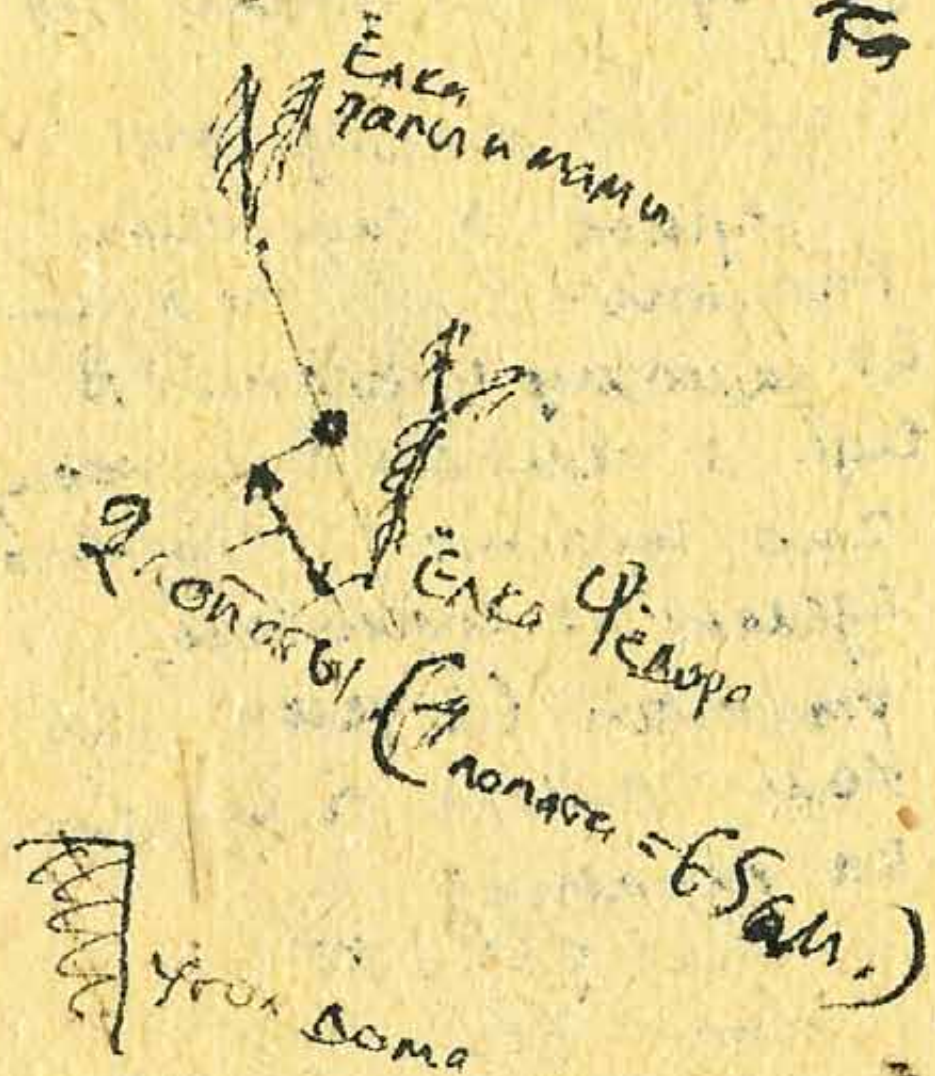 Ёлка
папы и мамы
Ёлка Фёдора
2 лопаты (1 лопата = 65 см.)
Угол дома